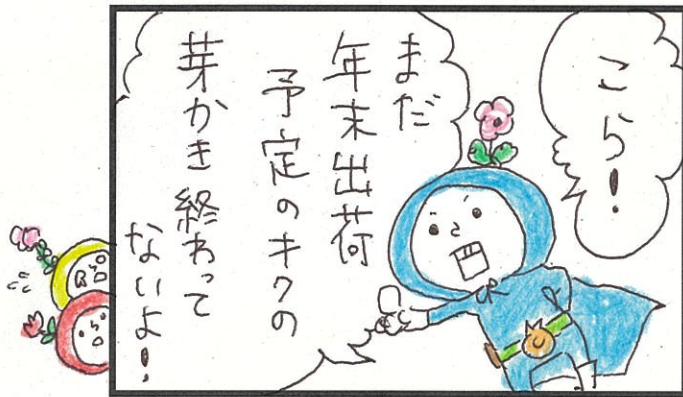 こら!
まだ
年末出荷
予定のキクの
芽かき終わって
ないよ!